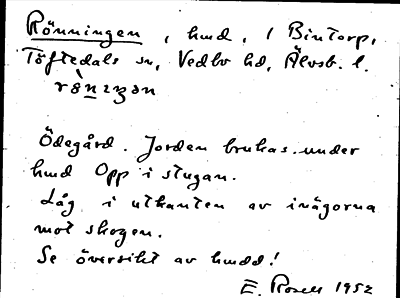 Rönningen, hmd, 1 Bintorp,
Töftedals sn, Vedbo hd, Älvsb. l.
Ödegård. Jorden brukas under
hmd Opp i stugan.
Låg i utkanten av inägorna
mot skogen.
Se översikt av hmdd!
E. Rosell 1952